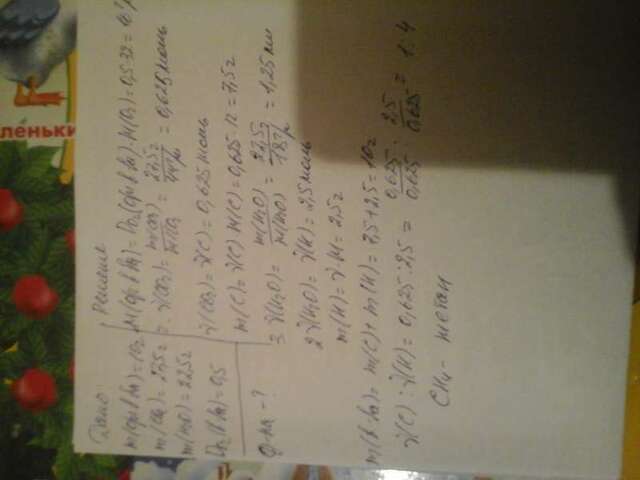 Дано:
m(орг в-ва)=10г
m(CO2)=27,5г
m(H2O)=22,5г
DO2(в-ва)=0,5
Ф-ла-?
Решение
M(орг в-ва)=DO2(орг в-ва)·M(O2)=0,5·32=16
2. ν(CO2)= m(CO2) / M(CO2) = 27,5г / = 0,625 моль
ν(CO2)=ν(C)=0,625 моль
m(C)=ν(C)·M(C)=0,625·12=7,5г
3. ν(H2O)= m(H2O) / M(H2O) = 22,5г / = 1,25
2ν(H2O)=ν(H)=2,5 моль
m(H)=ν·M=2,5г
m(в-ва)=m(C)+m(H)=7,5+2,5=10г
ν(C):ν(H)=0,625:2,5= 0,625 / 0,625 : 2,5 / 0,625 = 1:4
CH4 - метан
леньки